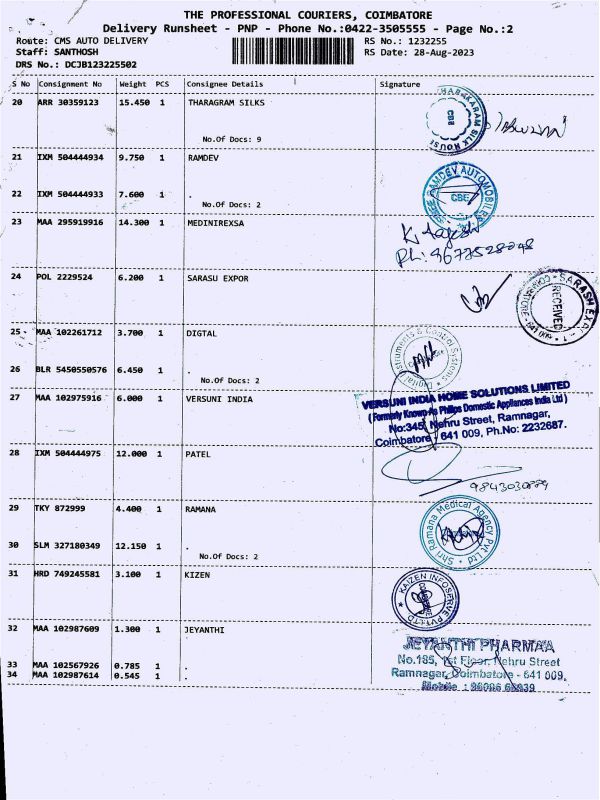 THE PROFESSIONAL COURIERS, COIMBATORE
Delivery Runsheet - PNP - Phone No.:0422-3505555 - Page No.:2
Route: CMS AUTO DELIVERY RS No.: 1232255
Staff: SANTHOSH RS Date: 28-Aug-2023
DRS No.: DCJB123225502
S No Consignment No Weight PCS Consignee Details Signature
20 ARR 30359123 15.450 1 THARAGRAM SILKS
No.Of Docs: 9
21 IXM 504444934 9.750 1 RAMDEV
22 IXM 504444933 7.600 1 .
No.Of Docs: 2
CBE
23 MAA 295919916 14.300 1 MEDINIREXSA
24 POL 2229524 6.200 1 SARASU EXPOR
RECEIVED
25 MAA 102261712 3.700 1 DIGTAL
26 BLR 5450550576 6.450 1 .
No.Of Docs: 2
27 MAA 102975916 6.000 1 VERSUNI INDIA
VERSUNI INDIA HOME SOLUTIONS LIMITED
(Formerly Known As Philips Domestic Appliances India Ltd)
No:345, Nehru Street, Ramnagar,
Coimbatore - 641 009, Ph.No: 2232687.
28 IXM 504444975 12.000 1 PATEL
29 TKY 872999 4.400 1 RAMANA
Shri Ramana Medical Agency Pvt Ltd
30 SLM 327180349 12.150 1 .
No.Of Docs: 2
31 HRD 749245581 3.100 1 KIZEN
KAIZEN INFOSERVE PVT LTD
32 MAA 102987609 1.300 1 JEYANTHI
JEYANTHI PHARMAA
No.185, 1st Floor, Nehru Street
Ramnagar, Coimbatore - 641 009.
33 MAA 102567926 0.785 1 .
34 MAA 102987614 0.545 1 .